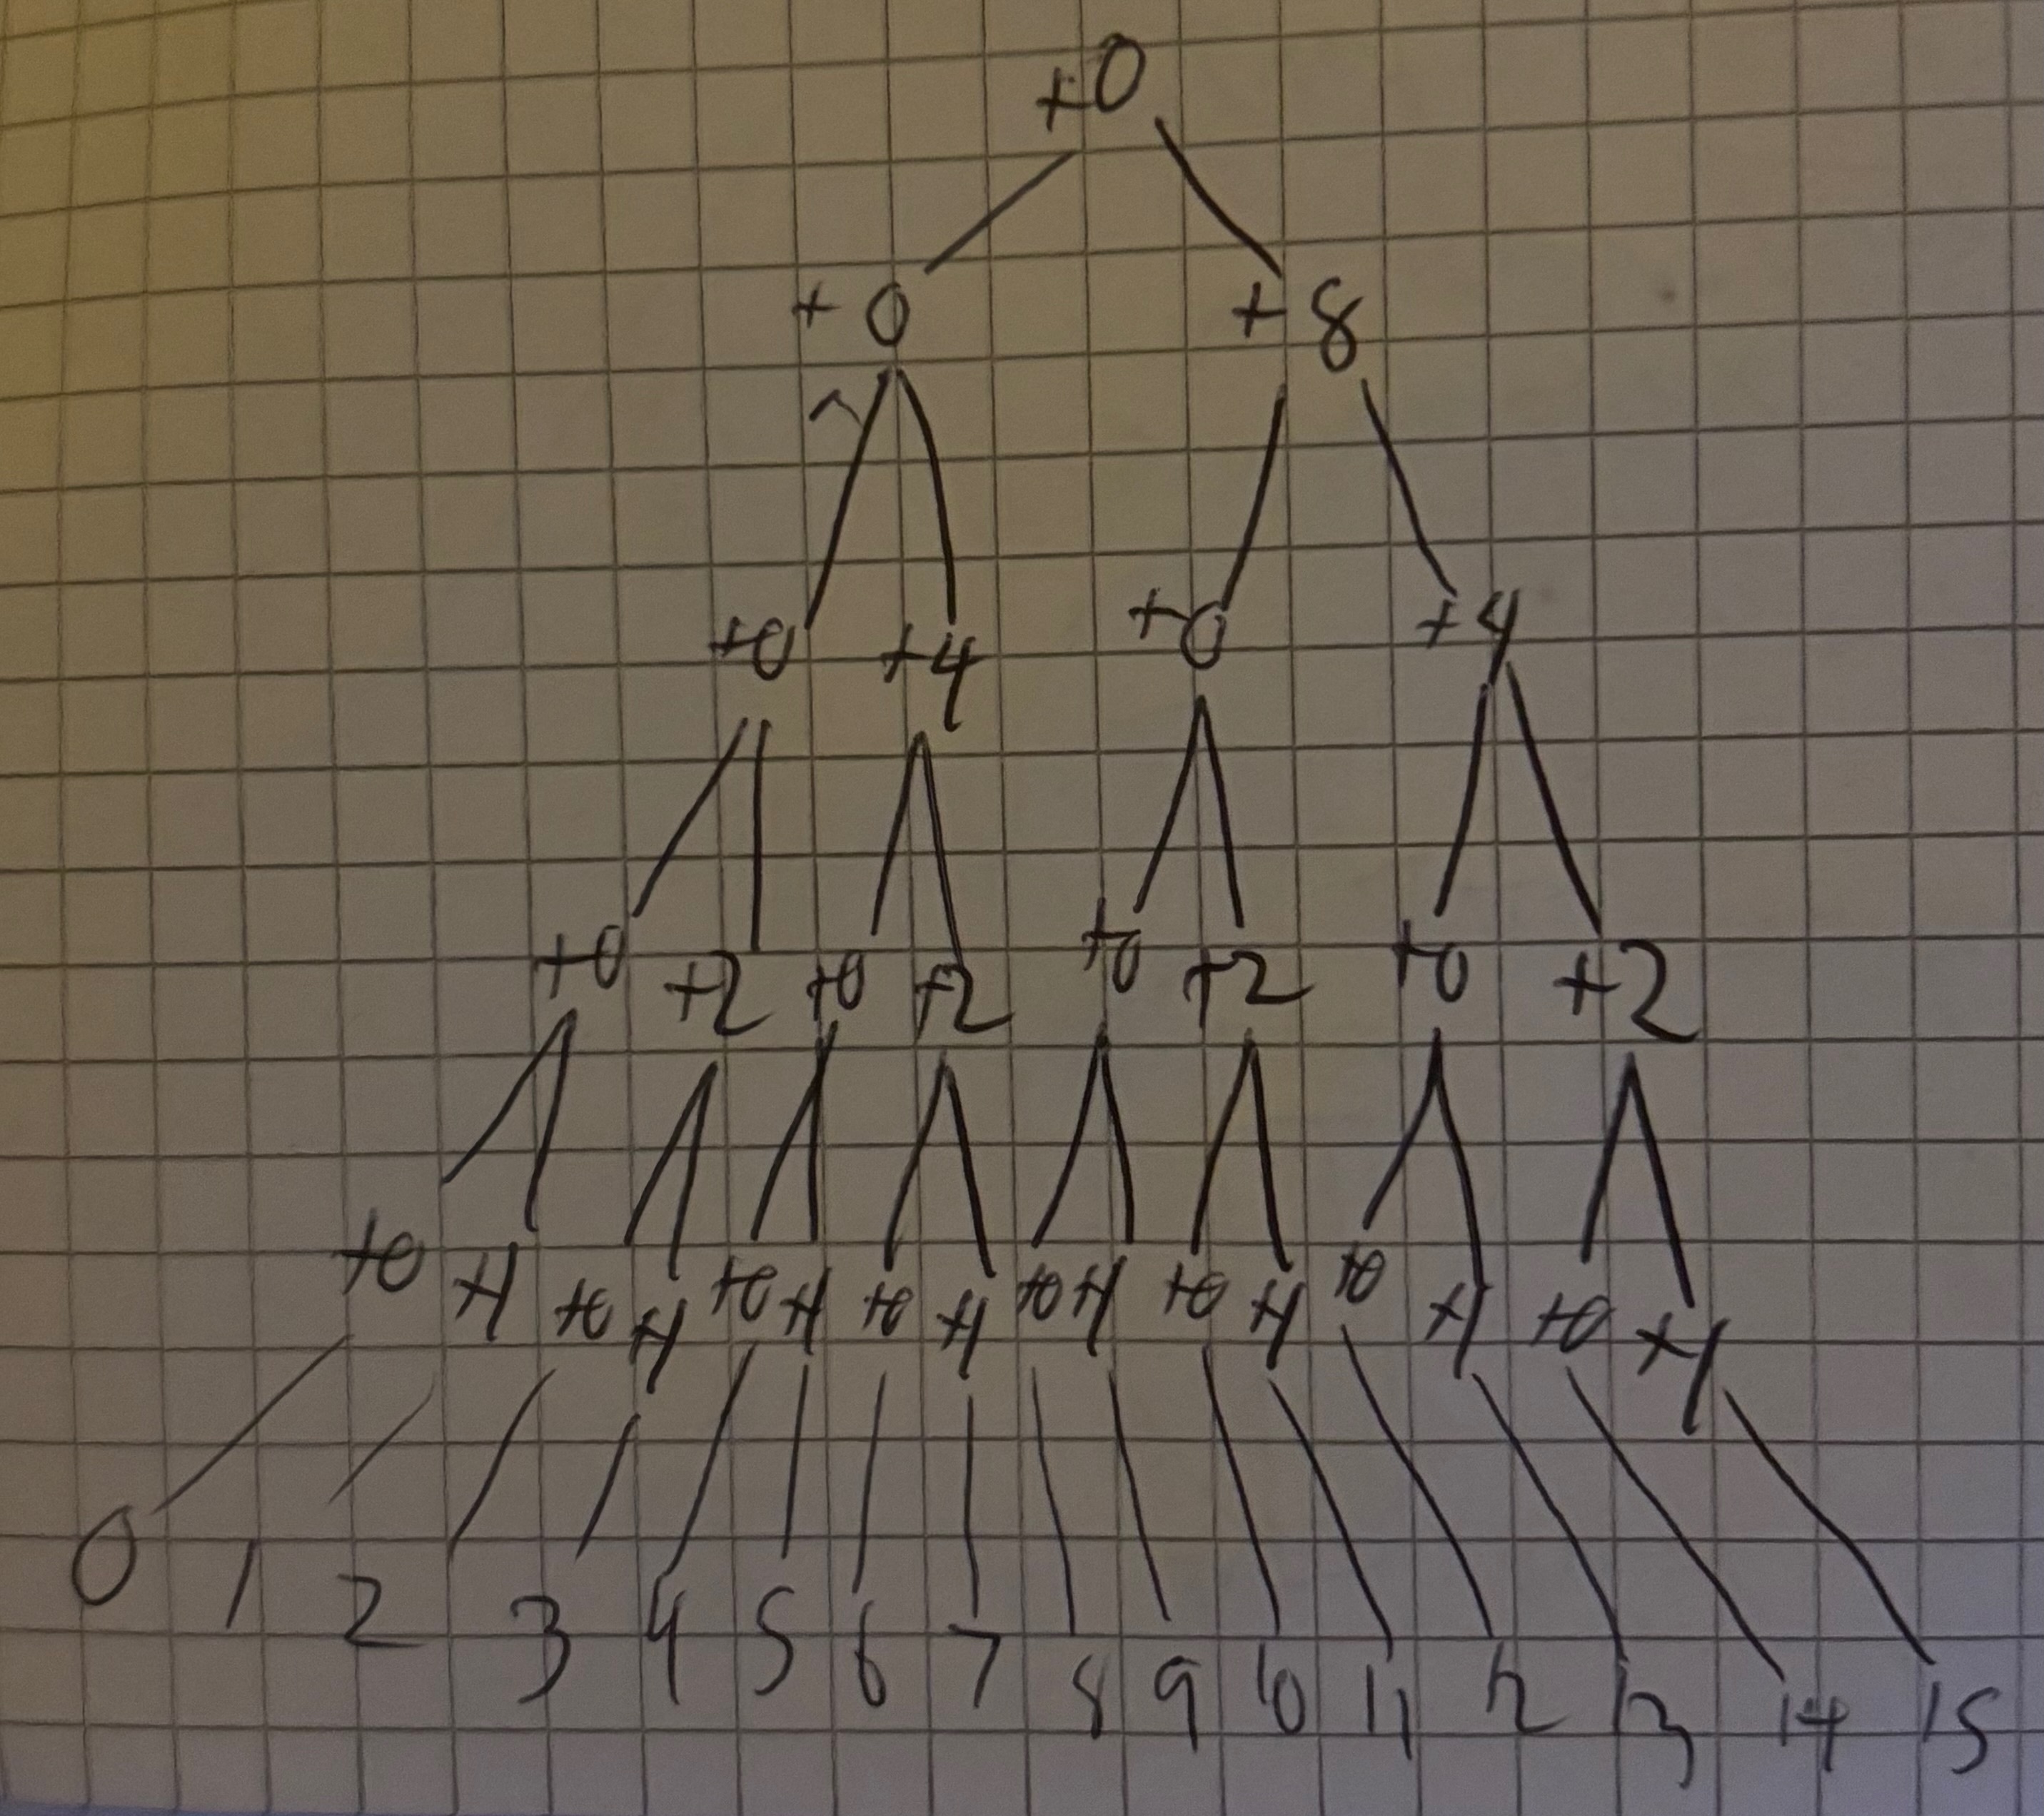 +0
+ 0 + 8
+0 +4 +0 +4
+0 +2 +0 +2 +0 +2 +0 +2
+0 +1 +0 +1 +0 +1 +0 +1 +0 +1 +0 +1 +0 +1 +0 +1
0 1 2 3 4 5 6 7 8 9 10 11 12 13 14 15